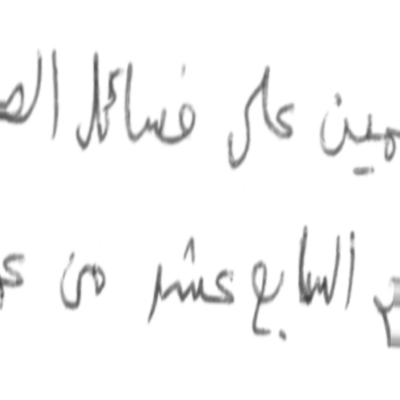 مين على فضائل الص
السابع عشر من